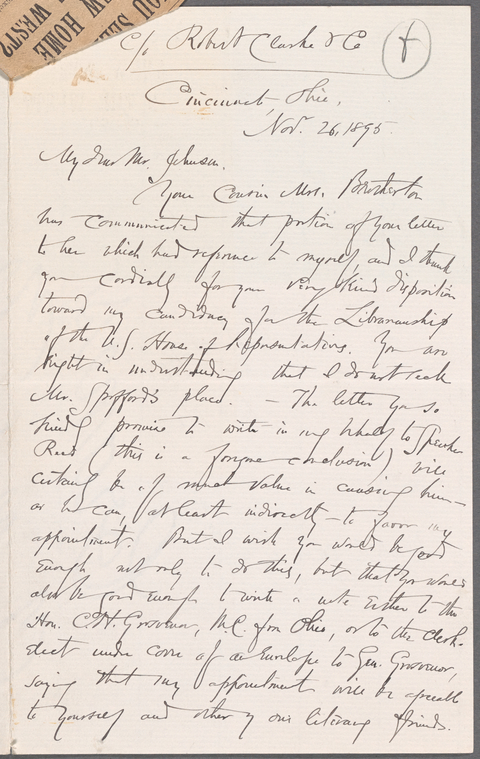 YOU SEL
AW HOME
WEST?
C/o Robert Clarke & Co
Cincinnati, Ohio,
Nov. 26, 1895.
My dear Mr. Johnson.
Your Cousin Mrs. Brotherton
has communicated that portion of your letter
to her which had reference to myself, and I thank
you cordially for your very kind disposition
toward my candidacy for the Librarianship
of the U.S. House of Representatives. You are
right in understanding that I do not seek
Mr. Spofford's place. — The letter you so
kindly promise to write in my behalf to Speaker
Reed (this is a foregone conclusion) will
certainly be of much value in causing him —
as he can, (at least indirectly — to favor my
appointment. But I wish you would be good
enough not only to do this, but that you would
also be good enough to write a note either to the
Hon. C.H. Grosvenor, M.C. from Ohio, or to the clerk-
elect under cover of an Envelope to Gen. Grosvenor,
saying that my appointment will be agreeable
to yourself and other of our literary friends.